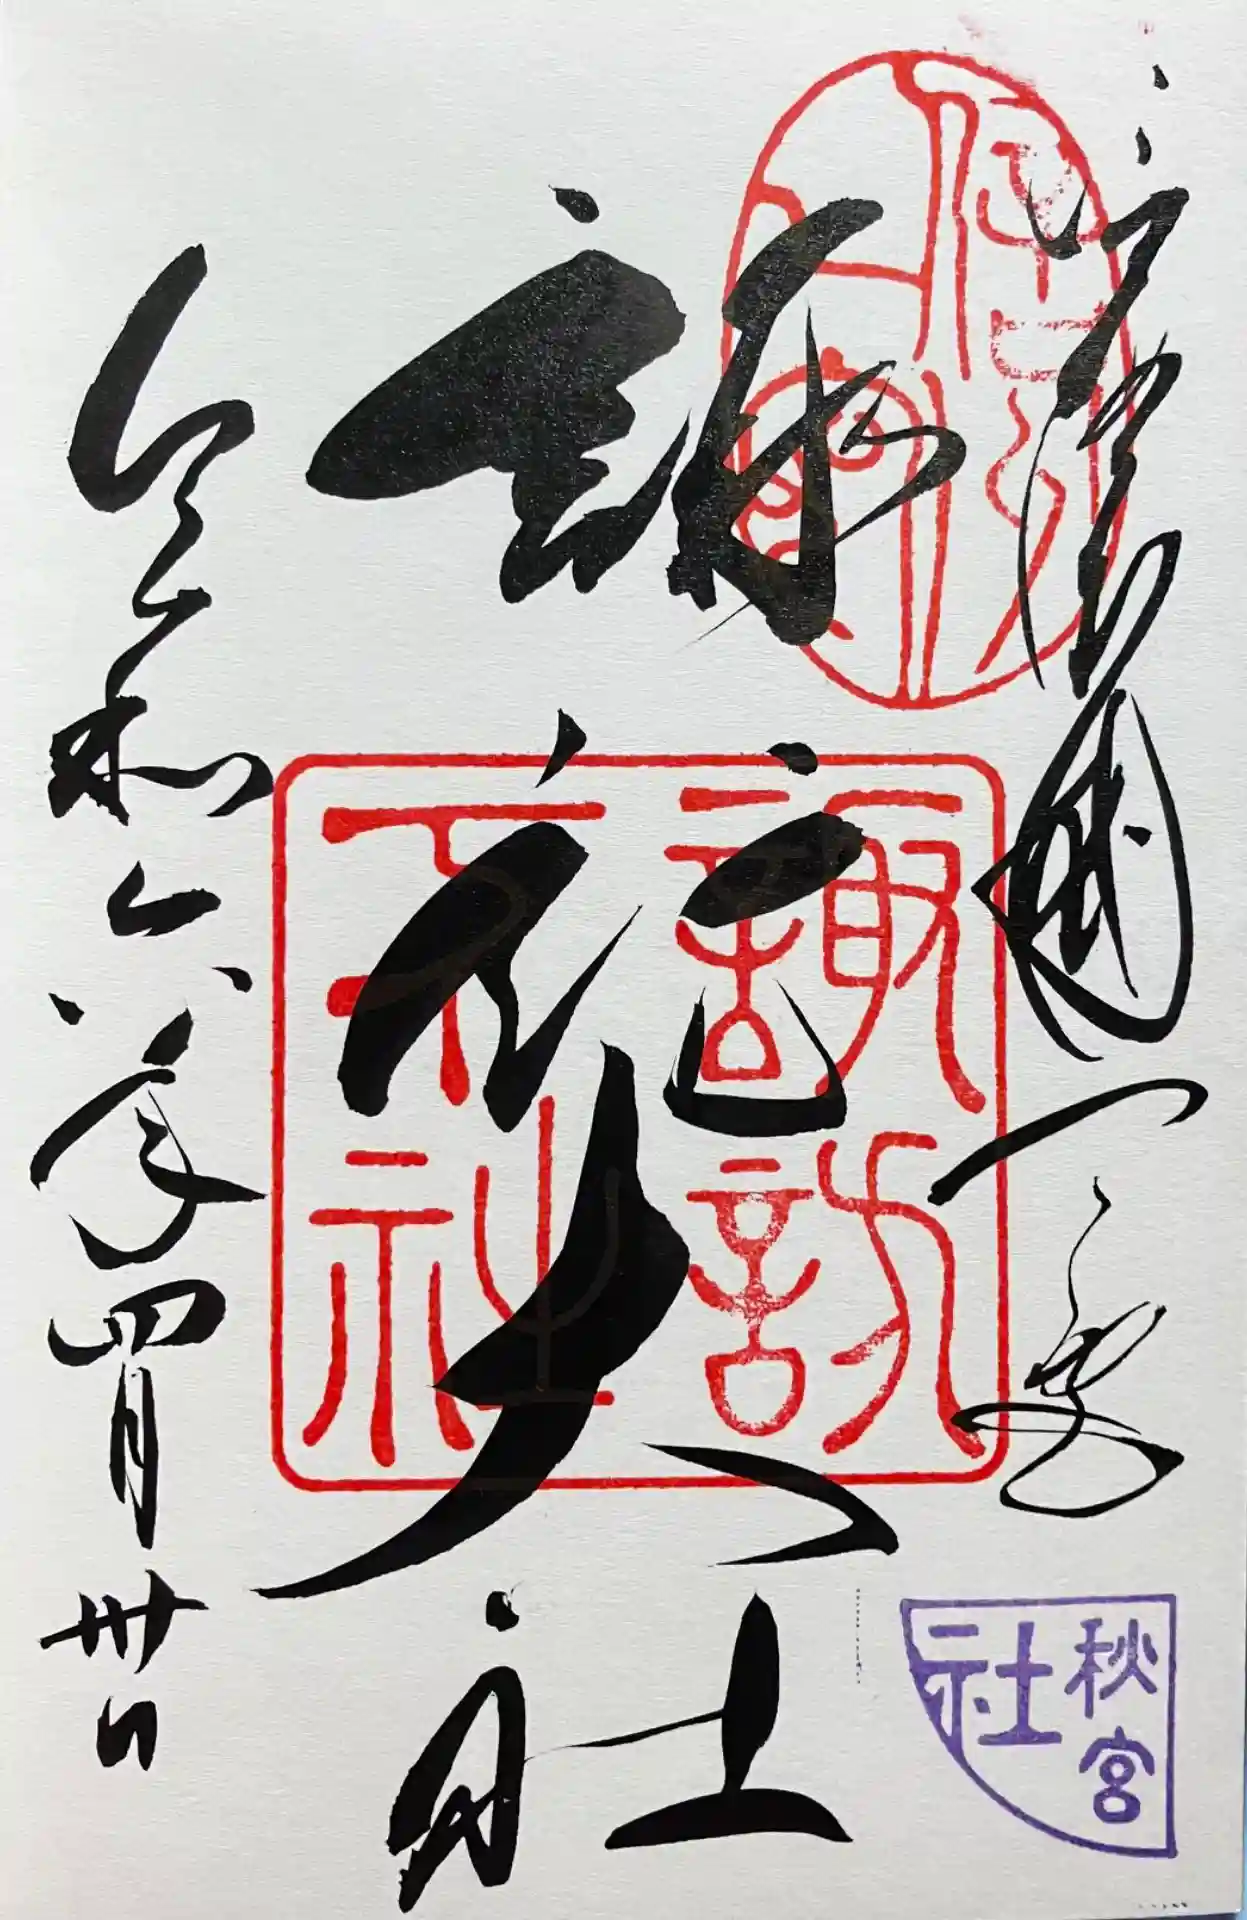 信濃國一之宮
諏訪大社
諏訪
下社
秋宮
社
令和六年四月卅日